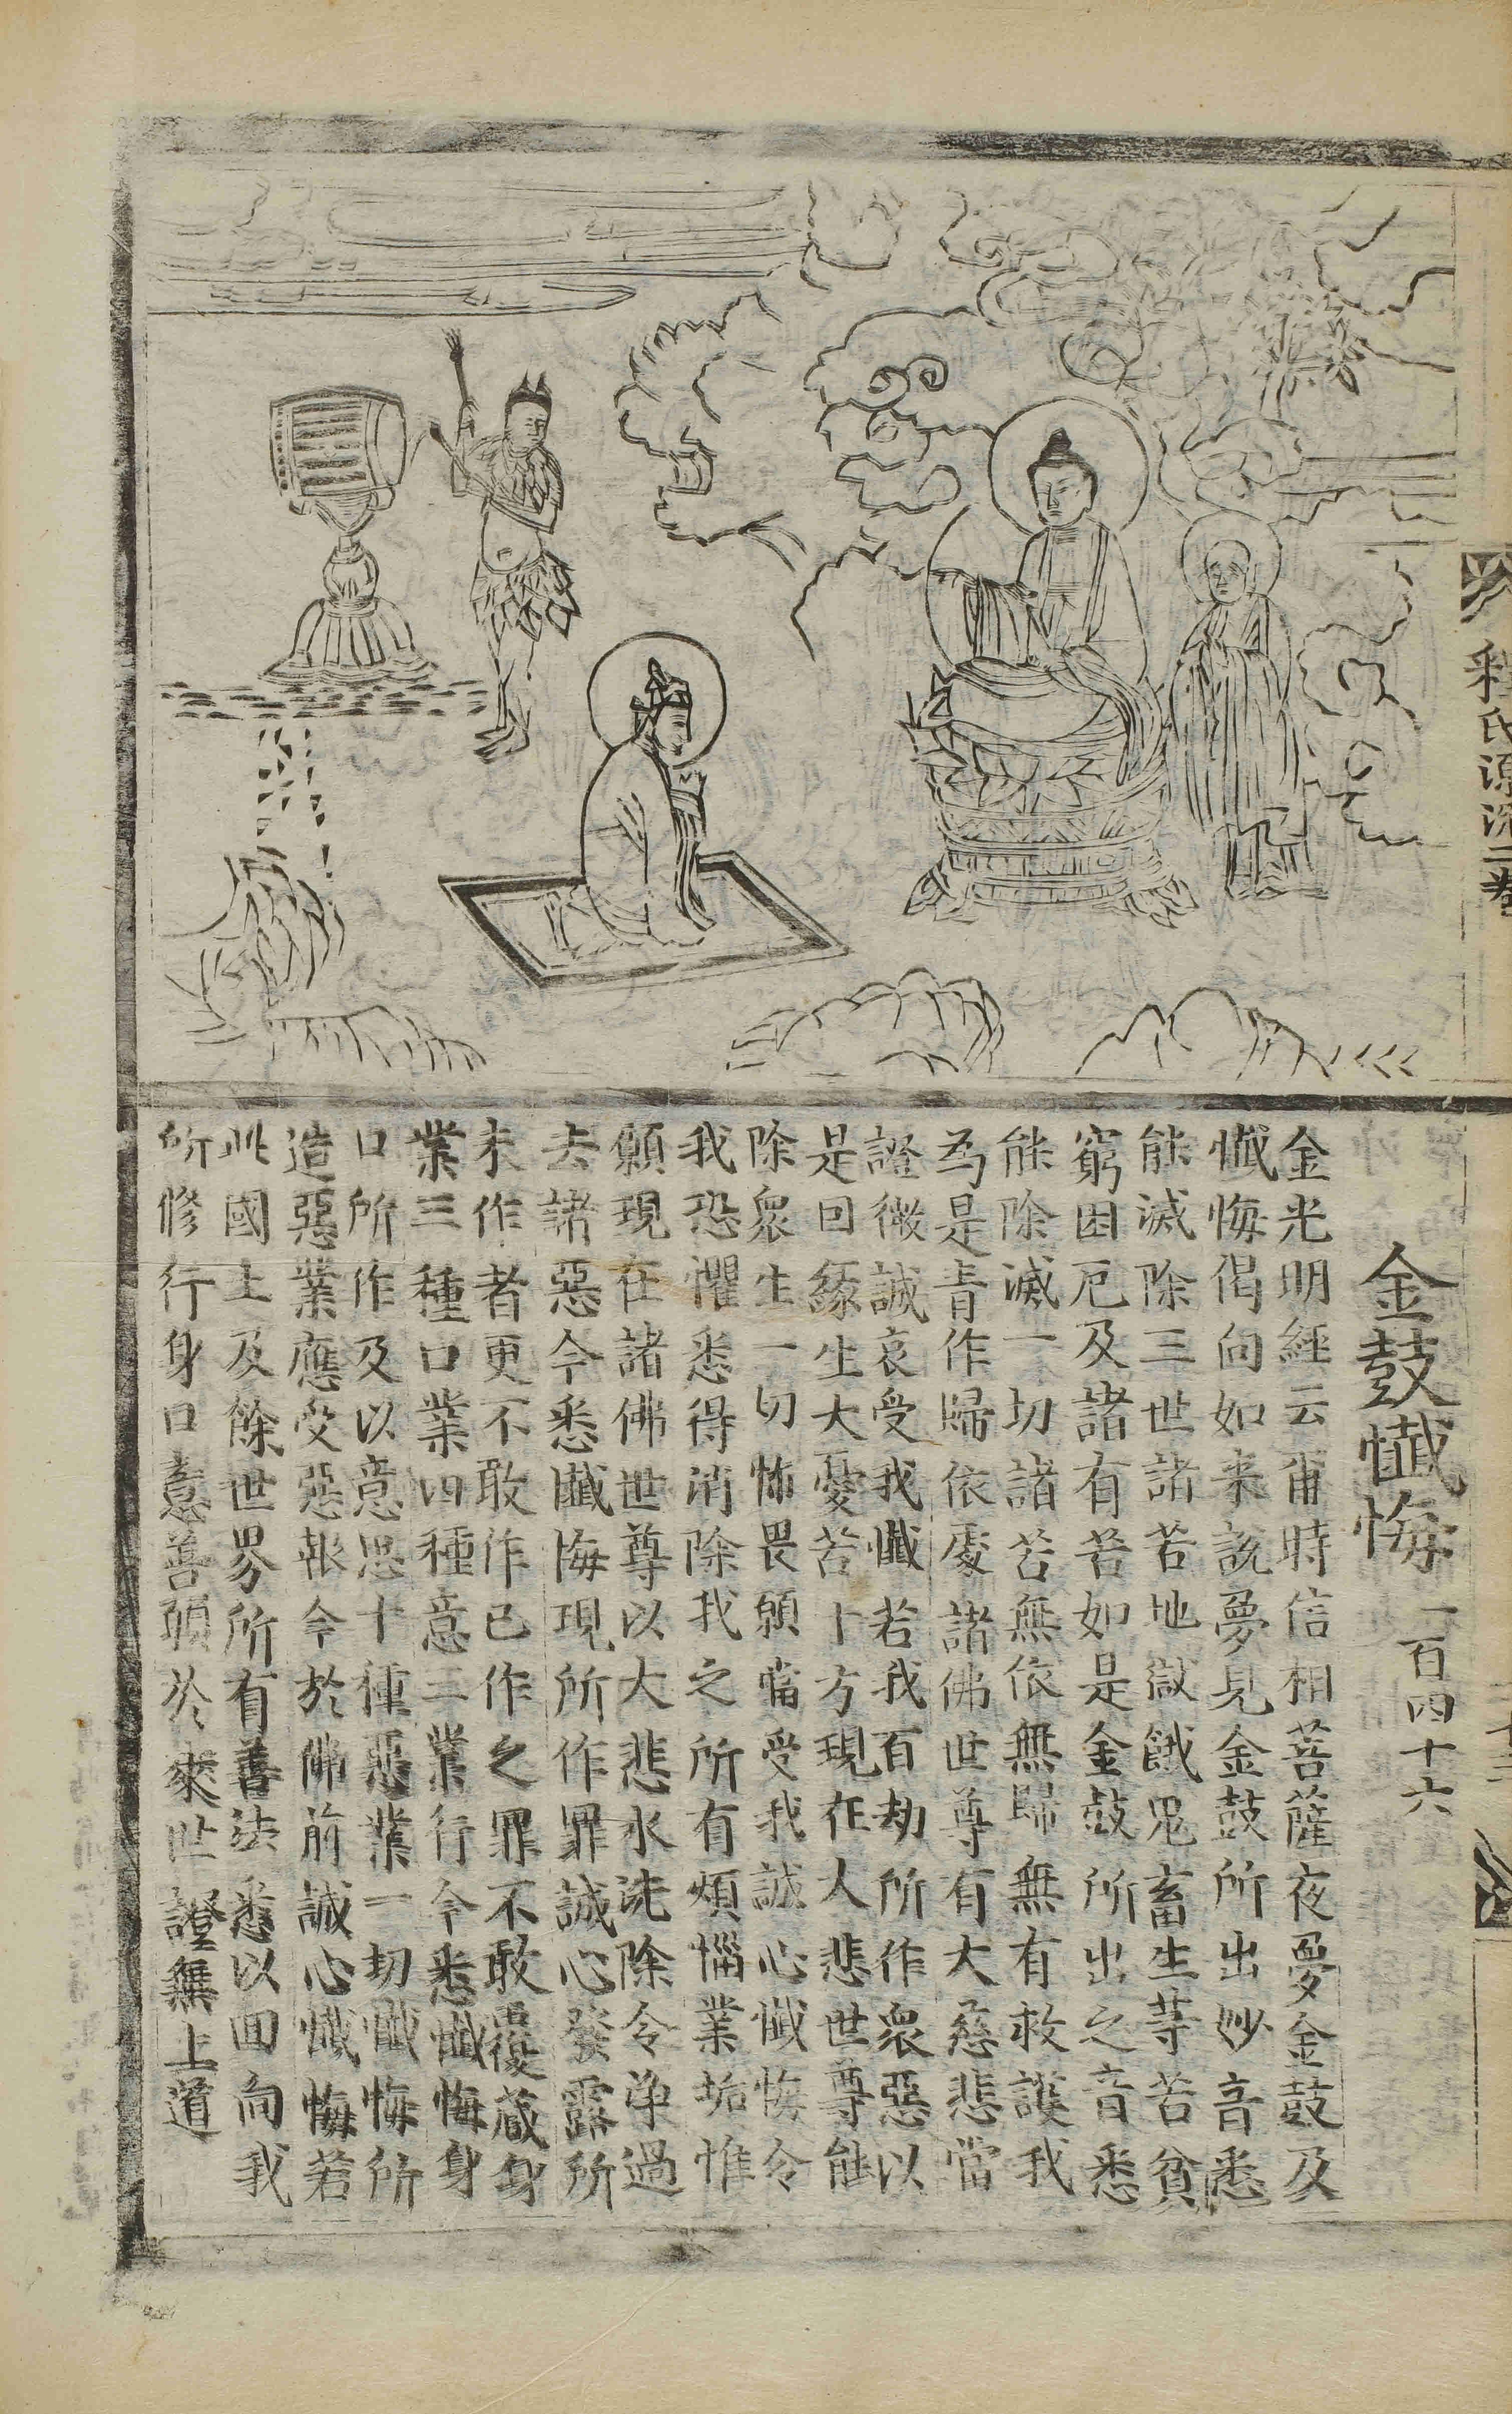 金鼓懺悔 一百四十六
金光明經云甫時信相菩薩夜夢金鼓及
懺悔偈向如来說夢見金鼓所出妙音悉
能滅除三世諸苦地獄餓鬼畜生等苦貧
窮困厄及諸有苦如是金鼓所出之音悉
能除滅一切諸苦無依無歸無有救護我
為是等作歸依處諸佛世尊有大慈悲當
證微誠哀受我懺若我百劫所作衆惡以
是因緣生大憂苦十方現在大悲世尊能
除衆生一切怖畏願當受我誠心懺悔令
我恐懼悉得消除我之所有煩惱業垢惟
願現在諸佛世尊以大悲水洗除令净過
去諸惡今悉懺悔現所作罪誠心發露所
未作者更不敢作已作之罪不敢覆藏身
業三種口業四種意三業行今悉懺悔身
口所作及以意思十種惡業一切懺悔所
造惡業應受惡報今於佛前誠心懺悔若
此國土及餘世界所有善法悉以回向我
所修行身口意善願於來世證無上道
釋氏源流二卷